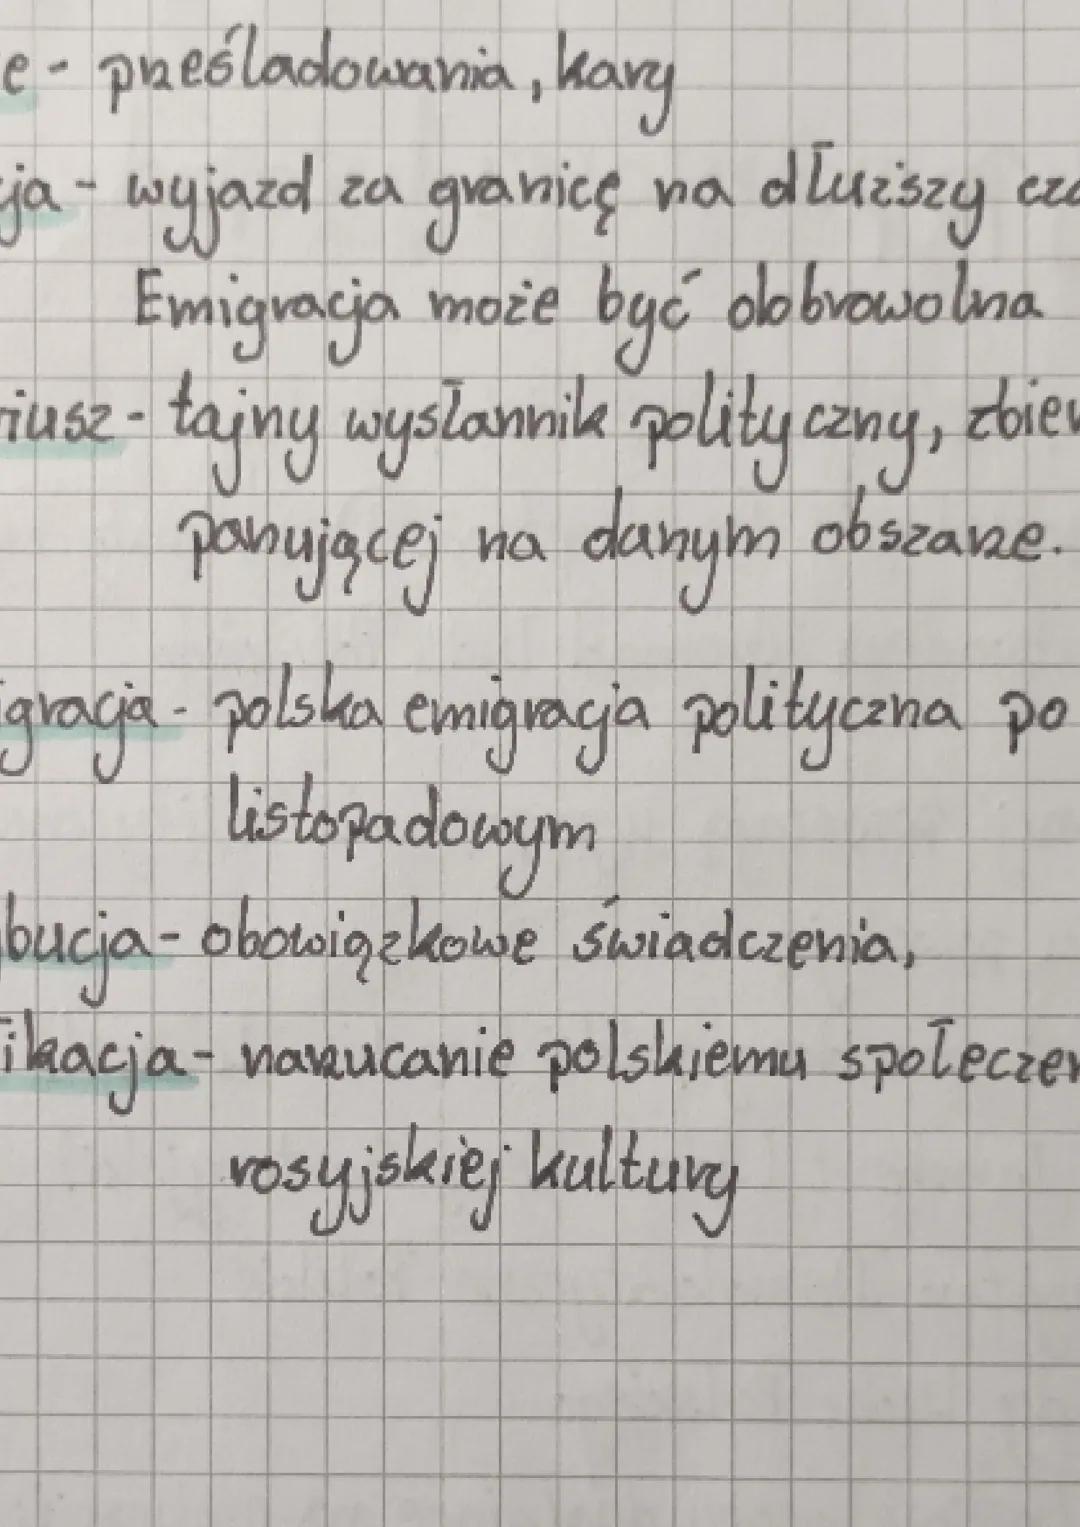 e - prześladowania, kary
cja - wyjazd za granicę na dłuższy cza
Emigracja może być dobrowolna
riusz - tajny wysłannik polityczny, zbier
panującej na danym obszarze.
igracja - polska emigracja polityczna po
listopadowym
bucja - obowiązkowe świadczenia,
fikacja - narzucanie polskiemu społeczeń
rosyjskiej kultury